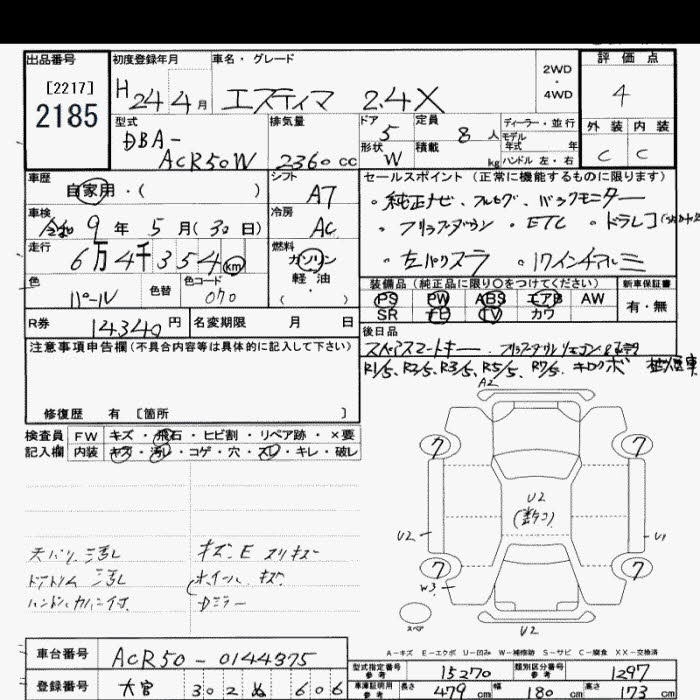 出品番号
[2217]
2185
初度登録年月
H 24 4 月
車名・グレード
エスティマ 2.4X
2WD
・
4WD
評価点
4
外装 内装
C C
型式
DBA-
ACR50W
排気量
2360 cc
ドア
5
定員
8 人
形状
W
積載
kg
ディーラー・並行
モデル
年式 年
ハンドル 左・右
車歴
自家用・( )
車検
令和 9 年 5 月(30日)
走行
6万4千354km
色
パール
色替
色コード
070
シフト
A7
冷房
AC
燃料
ガソリン
軽・油
( ・ )
セールスポイント (正常に機能するものに限ります)
・純正ナビ、フルセグ、バックモニター
・フリップダウン ・ETC ・ドラレコ
・左パワスラ ・17インチアルミ
装備品 (純正品に限り○をつけてください)
PS PW ABS エアB AW
SR ナビ TV カワ
新車保証書
有・無
R券
14340円
名変期限 月 日
後日品
スペアスマートキー
R1/5、R2/5、R3/5、R5/5、R7/5、キロクボ
注意事項申告欄(不具合内容等は具体的に記入して下さい)
修復歴 有 [箇所 ]
検査員
記入欄
FW キズ・飛石・ヒビ割・リペア跡・×要
内装 キズ・汚レ・コゲ・穴・スレ・キレ・破レ
天バリ 汚レ
ドアトリム 汚レ
ハンドルカバー付
キズ、E スリキズ
ホイール キズ
Dミラー
A2
7 7
U2
U2 U1
7 7
W3
スペア
U2
A-キズ E-エクボ U-凹み W-補修跡 S-サビ C-腐食 XX-交換済
車台番号
ACR50-0144375
登録番号
大宮 302 ぬ 606
型式指定番号
参考
15270
類別区分番号
参考
1297
車庫証明用
参考
長さ 479 cm 幅 180 cm 高さ 173 cm